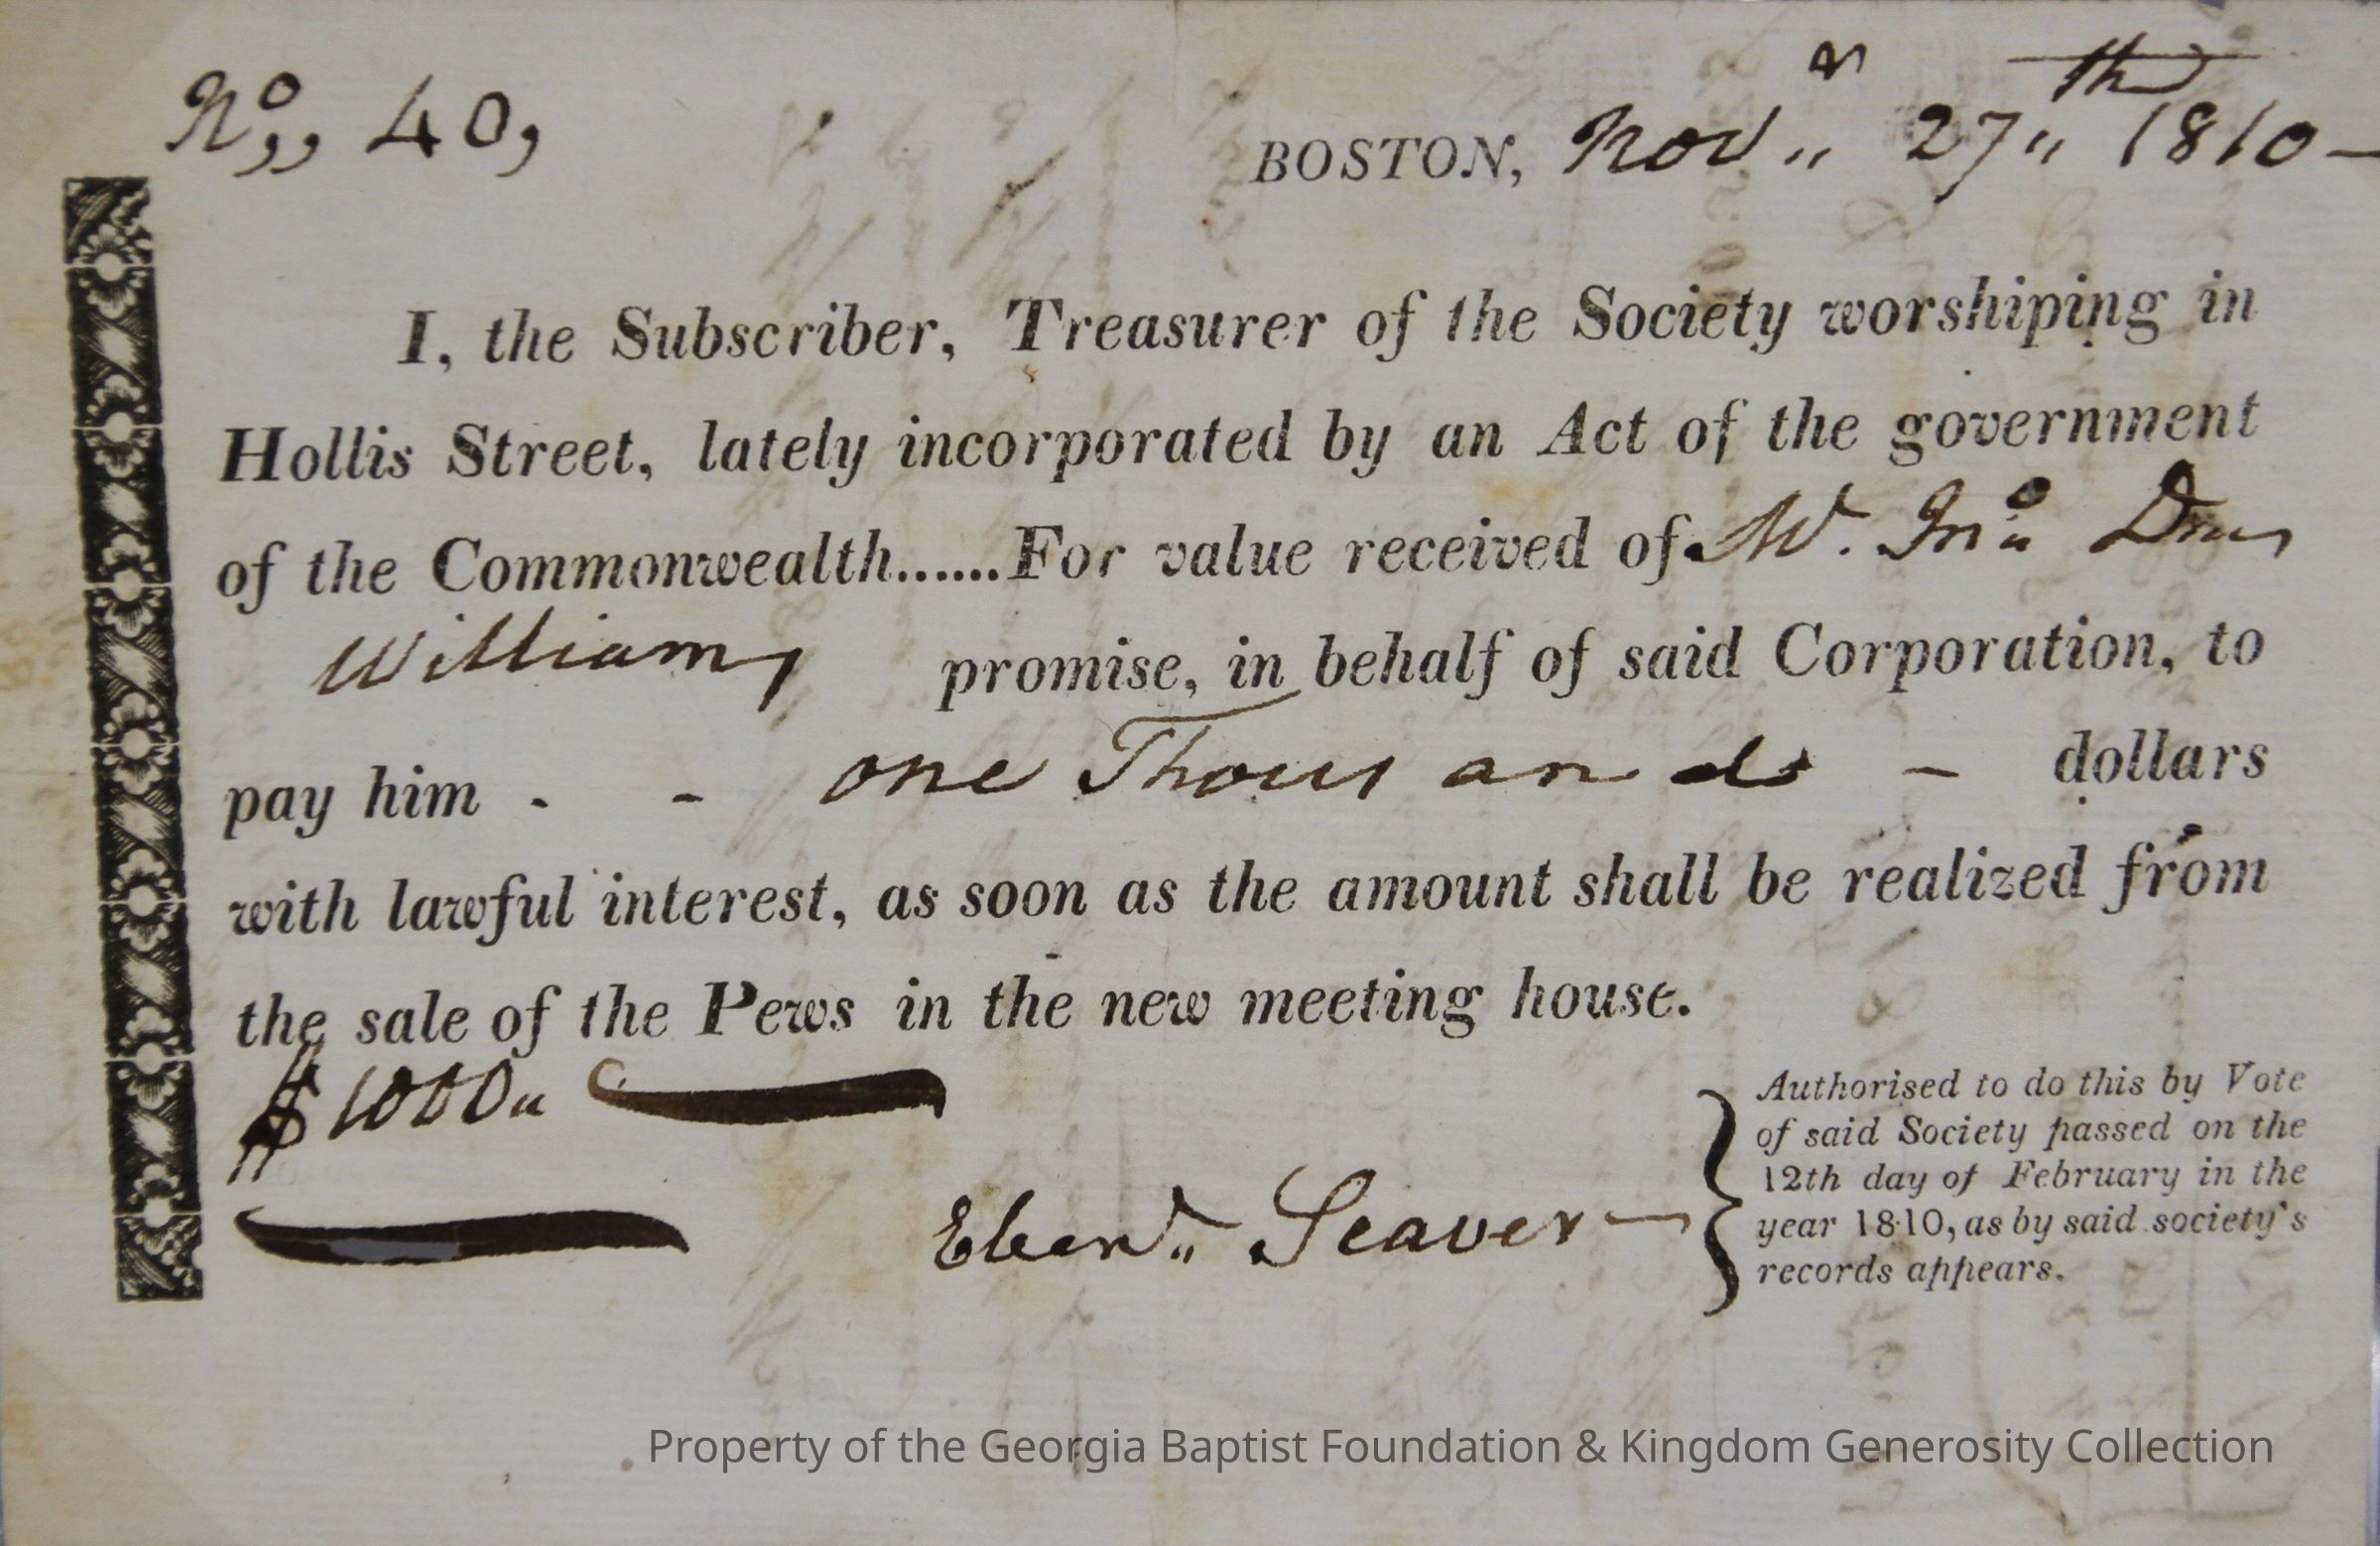 No,, 40,
BOSTON, Novr,, 27,,th 1810 —
I, the Subscriber, Treasurer of the Society worshiping in
Hollis Street, lately incorporated by an Act of the government
of the Commonwealth.......For value received of Jno
Williams promise, in behalf of said Corporation, to
pay him - - one Thousand - dollars
with lawful interest, as soon as the amount shall be realized from
the sale of the Pews in the new meeting house.
$1000,,
Ebenr,, Seaver —
Authorised to do this by Vote
of said Society passed on the
12th day of February in the
year 1810, as by said society's
records appears.
Property of the Georgia Baptist Foundation & Kingdom Generosity Collection